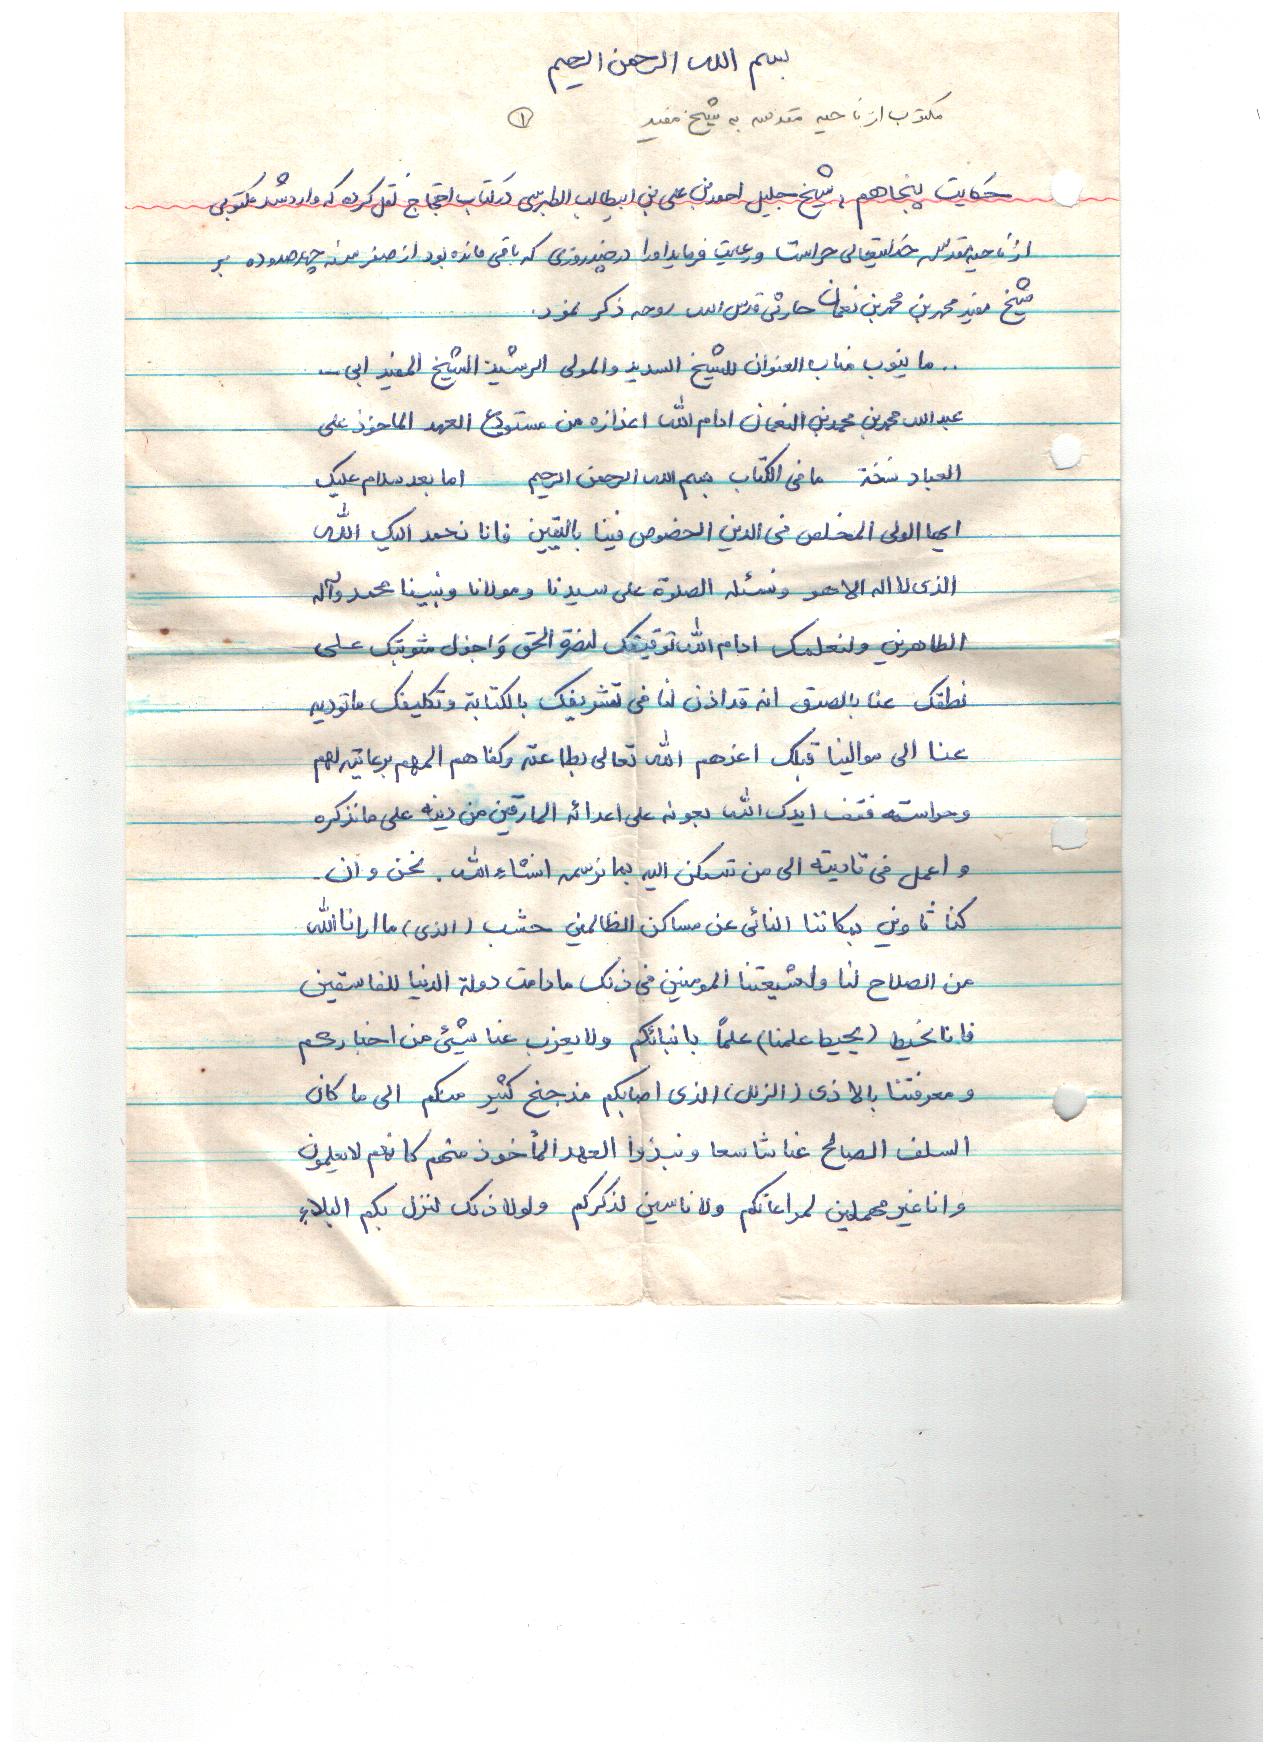 بسم الله الرحمن الرحیم
مکتوب از ناحیه مقدسه به شیخ مفید ۱
حکایت پنجاهم، شیخ جلیل احمد بن علی بن ابیطالب الطبرسی در کتاب احتجاج نقل کرده که وارد شد مکتوبی
از ناحیه مقدسه خدایتعالی حراست و رعایت فرماید او را در چند روزی که باقی مانده بود از صفر سنه چهارصد و ده بر
شیخ مفید محمد بن محمد بن نعمان حارثی قدس الله روحه ذکر نمود.
.. ما ینوب مناب العنوان للشیخ السدید والمولی الرشید الشیخ المفید ابی ...
عبدالله محمد بن محمد بن النعمان ادام الله اعزازه من مستودع العهد الماخوذ علی
العباد نسخة ما فی الکتاب بسم الله الرحمن الرحیم اما بعد سلام علیک
ایها الولی المخلص فی الدین الخصوص فینا بالیقین فانا نحمد الیک الله
الذی لا اله الا هو ونسئله الصلوة علی سیدنا ومولانا ونبینا محمد وآله
الطاهرین ولنعلمک ادام الله توفیقک لنصرة الحق وَاجزل مثوبتک علی
نطقک عنا بالصدق انه قد اذن لنا فی تشریفک بالکتابة وتکلیفک ماتودیه
عنا الی موالینا قبلک اعزهم الله تعالی بطاعته وکفاهم المهم برعایته لهم
وحراسته فقف ایدک الله بعونه علی اعدائه المارقین من دینه علی مانذکره
و اعمل فی تادیته الی من تسکن الیه بما نرسمه انشاء الله . نحن و ان .
کنا ثاوین بمکاننا النائی عن مساکن الظالمین حسب (الذی) ما ارانا الله
من الصلاح لنا ولشیعتنا المومنین فی ذلک مادامت دولة الدنیا للفاسقین
فانا نحیط (یحیط علمنا) علماً بانبائکم ولا یعزب عنا شیئی من اخبارکم
و معرفتنا بالاذی (الزلل) الذی اصابکم مذ جنح کثیر منکم الی ما کان
السلف الصالح عنا شاسعا ونبذوا العهد المأخوذ منهم کانهم لا یعلمون
وانا غیر مهملین لمراعاتکم ولا ناسین لذکرکم ولولا ذلک لنزل بکم البلاءِ